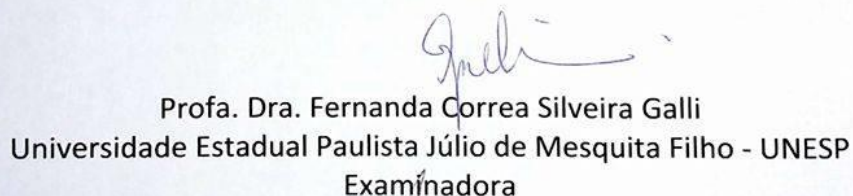 Profa. Dra. Fernanda Correa Silveira Galli
Universidade Estadual Paulista Júlio de Mesquita Filho - UNESP
Examinadora